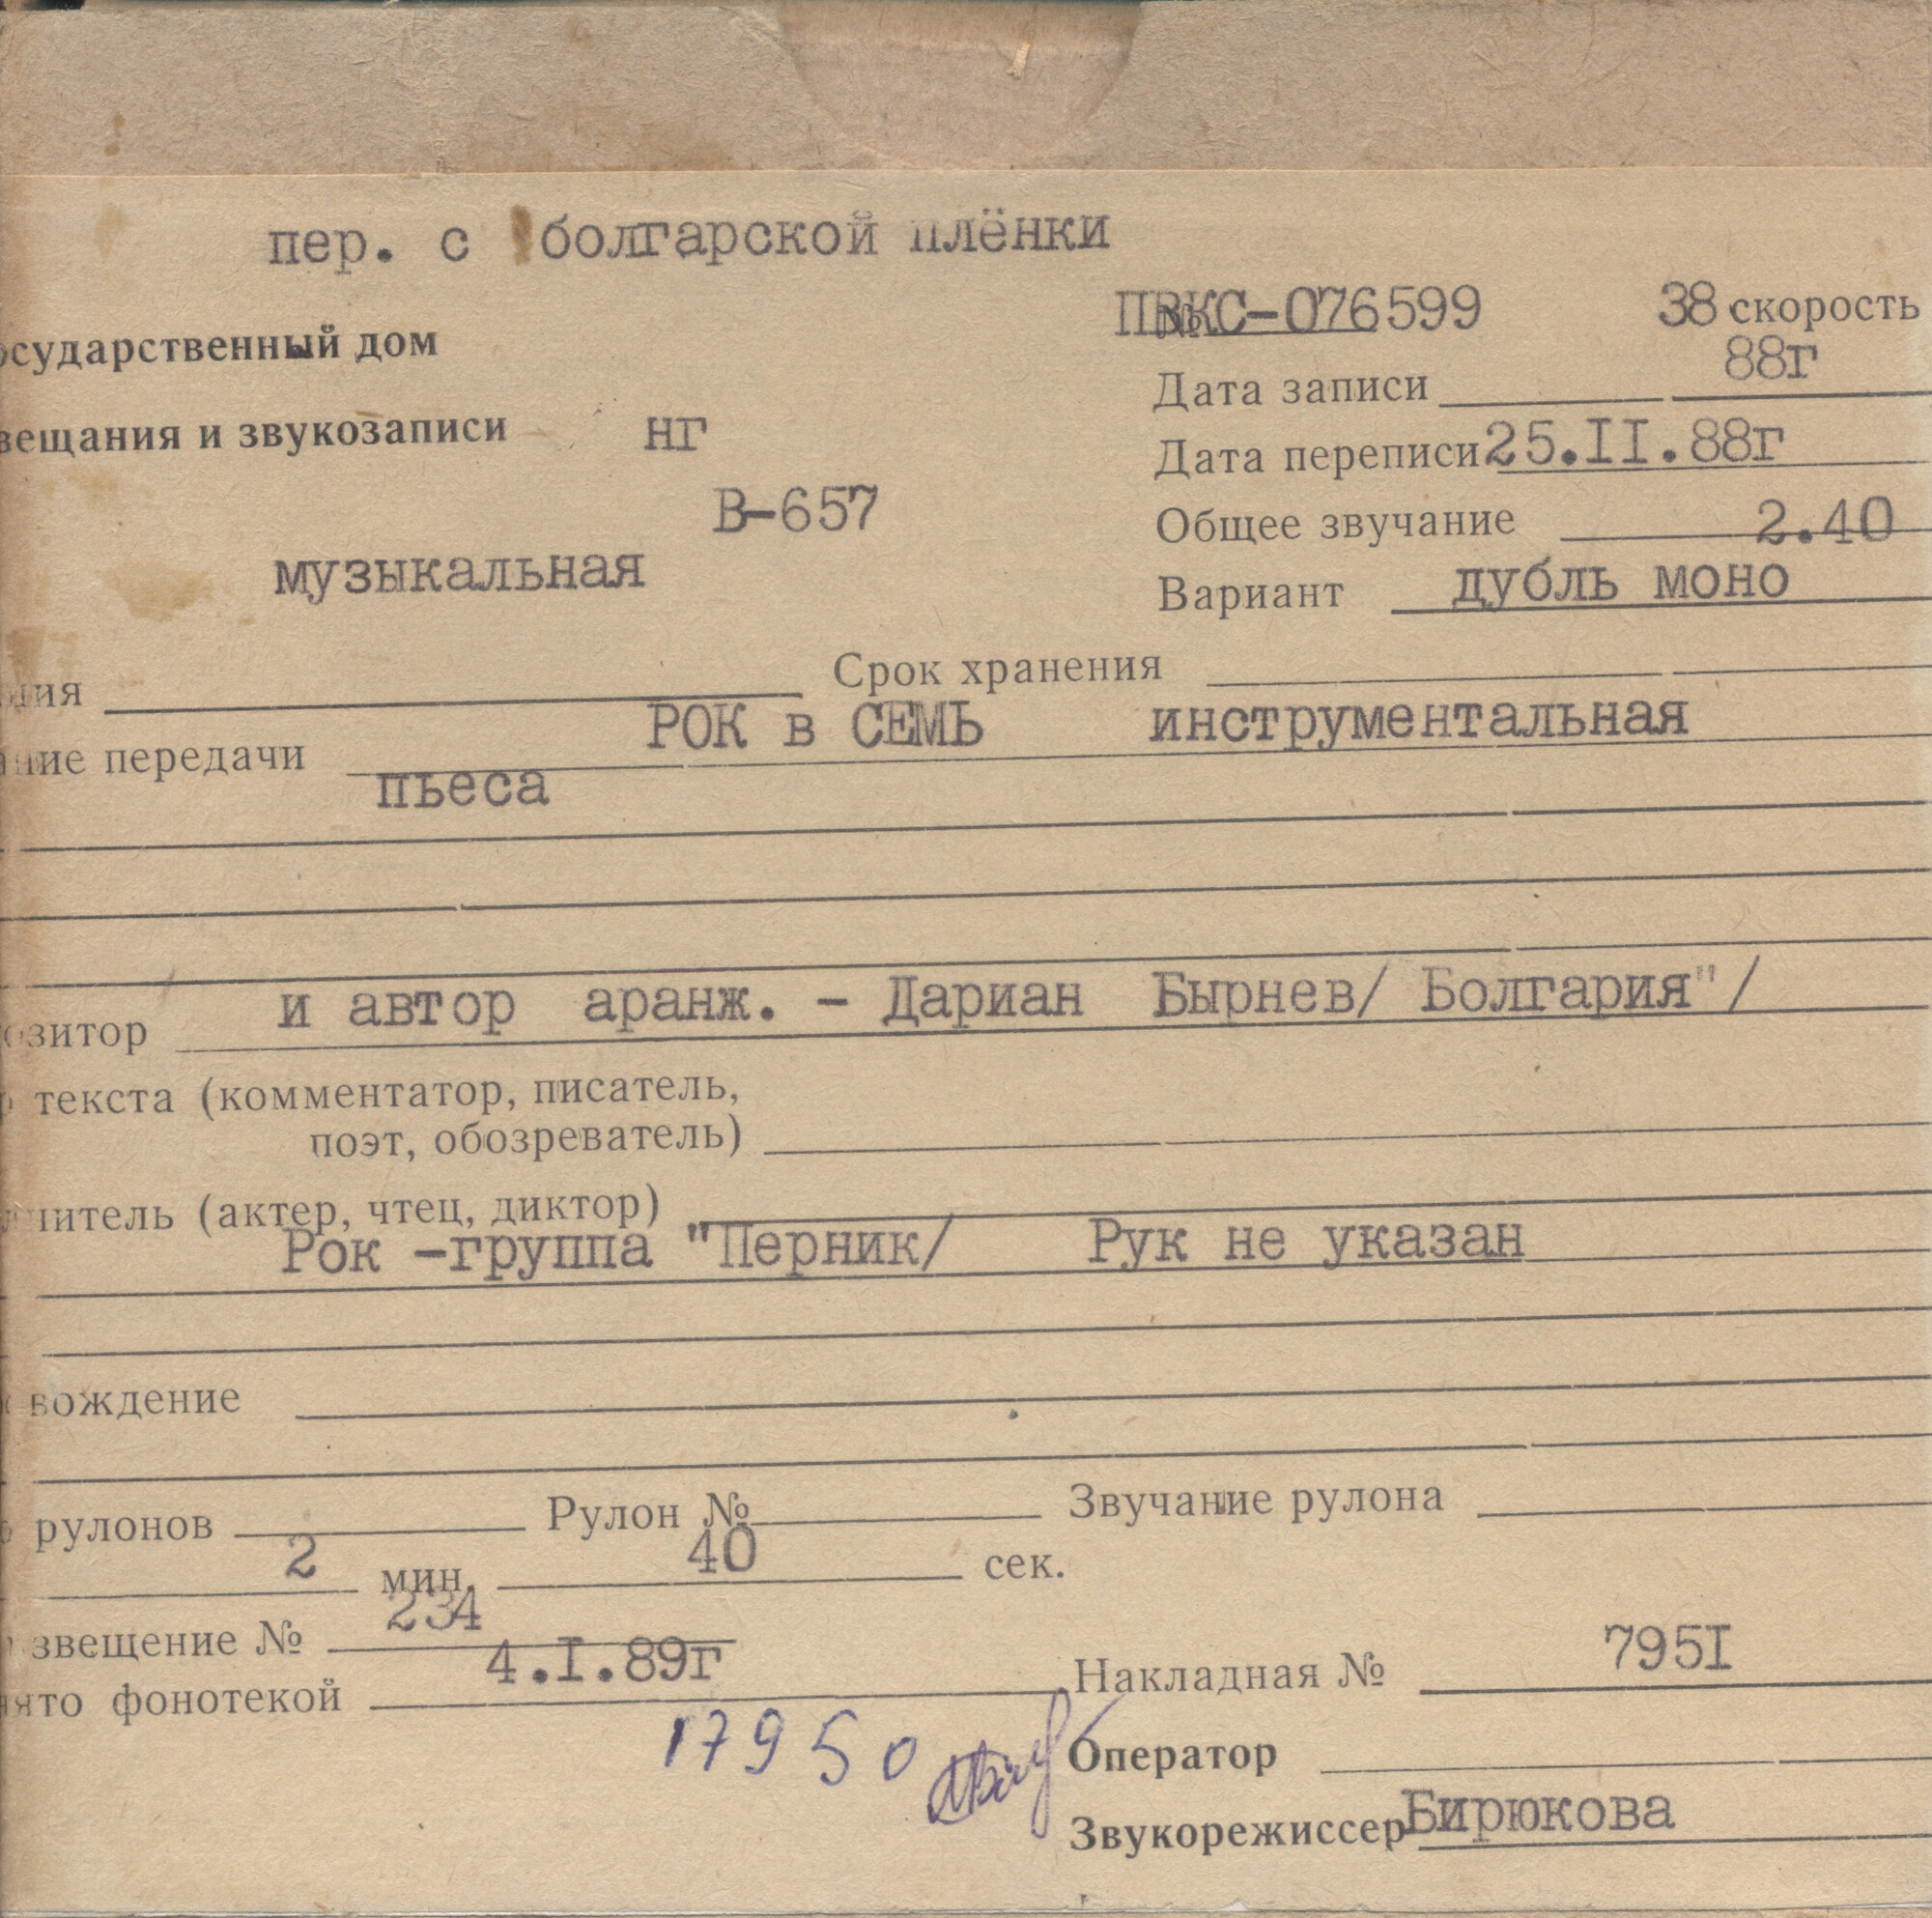 пер. с болгарской плёнки
ПВКС-076599 38 скорость
осударственный дом
88г
Дата записи
вещания и звукозаписи нг
Дата переписи 25.II.88г
В-657
Общее звучание 2.40
музыкальная
Вариант дубль моно
Срок хранения
РОК в СЕМЬ инструментальная
ние передачи
пьеса
и автор аранж. - Дариан Бырнев/ Болгария"/
озитор
текста (комментатор, писатель,
поэт, обозреватель)
нитель (актер, чтец, диктор)
Рок -группа "Перник/ Рук не указан
вождение
рулонов Рулон № Звучание рулона
2 мин. 40 сек.
234
звещение №
Накладная № 795I
4.I.89г
ято фонотекой
17950
Оператор
Звукорежиссер Бирюкова